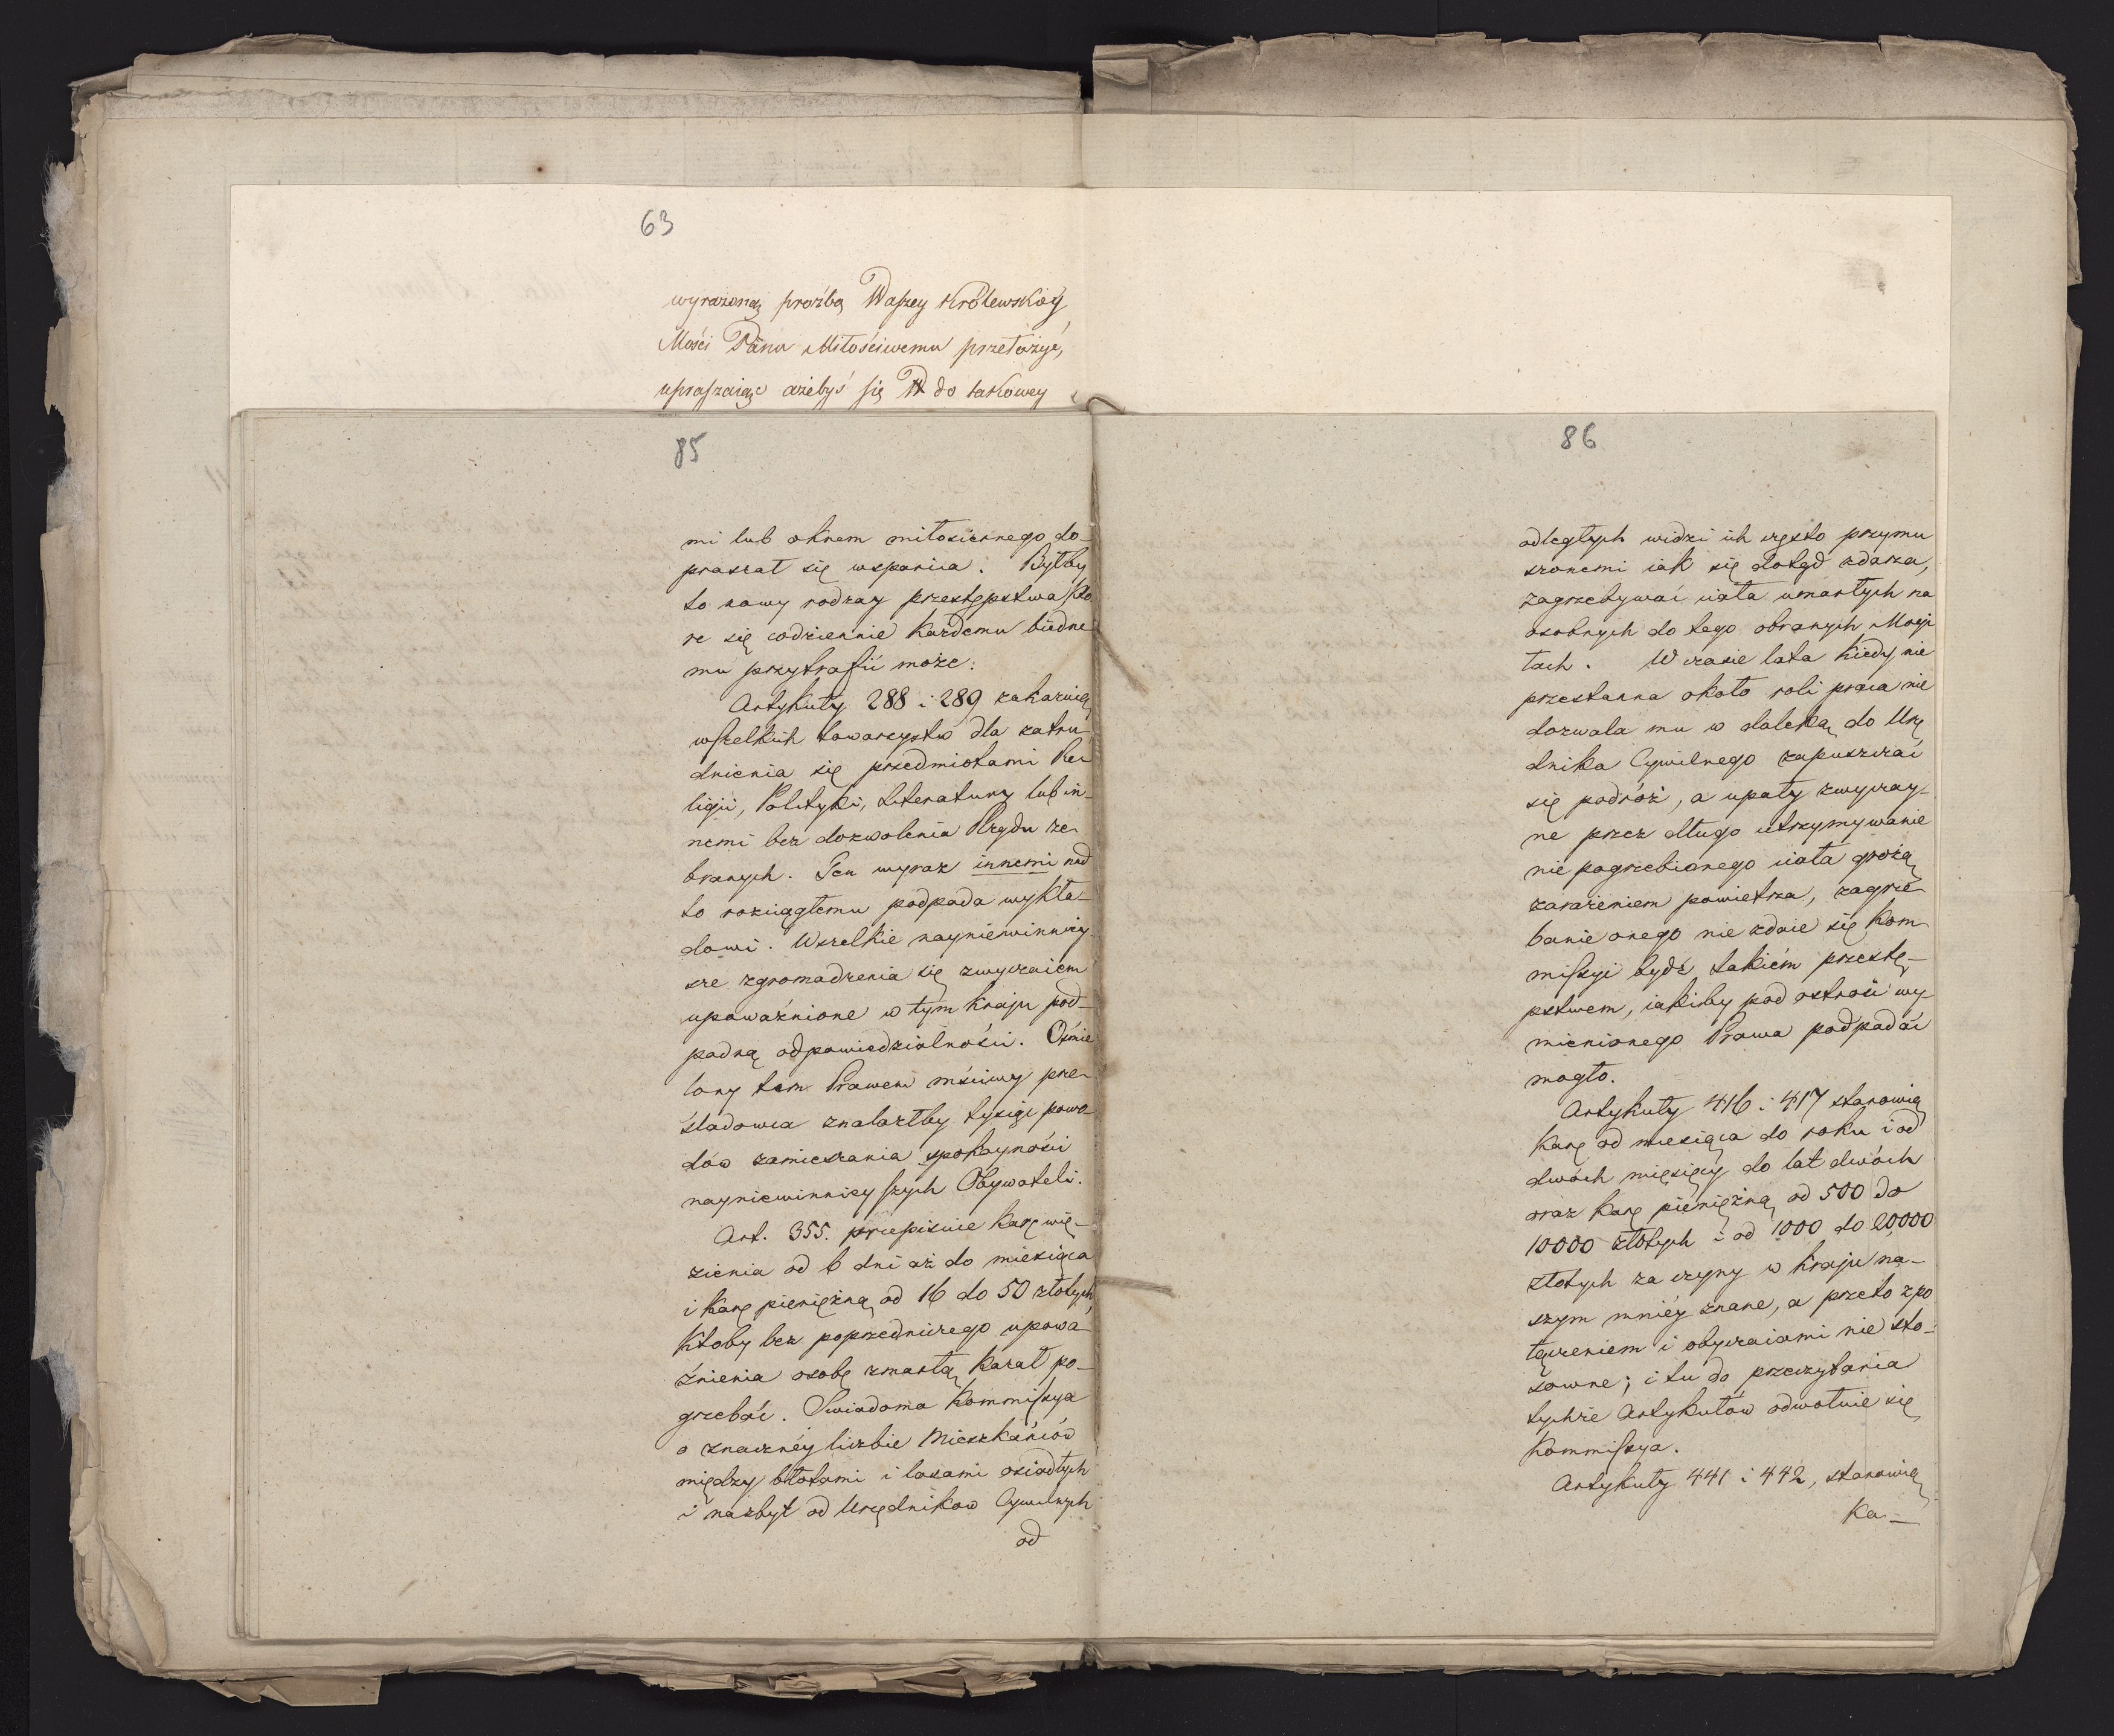 63
wyrażoną proźbą Waszey Królewskiéy
Mości Panu Miłościwemu przełożyć,
upraszaiąc ażebyś się do takowey
85
mi lub oknem miłosiernego do-
praszał się wsparcia. Byłby
to nowy rodzay przestępstwa któ
re się codziennie każdemu biedne
mu przytrafić może.
Artykuły 288 i 289 zakazuią
wszelkich towarzystw dla zatru
dnienia się przedmiotami Re-
ligii, Polityki, Literatury lub in-
nemi bez dozwolenia Rządu ze-
branych. Ten wyraz innemi nad
to rozciągłemu podpada wykła-
dowi. Wszelkie nayniewinniey-
sze zgromadzenia się zwyczaiem
upoważnione w tym kraju pod-
padną odpowiedzialności. Ośmie
lony tem Prawem mściwy prze-
śladowca znalazłby tysiąc powo-
dów zamieszania spokoyności
nayniewinnieyszych Obywateli.
Art. 355. przepisuie karę wię-
zienia od 6 dni aż do miesiąca
i karę pieniężną od 16 do 50 złotych,
ktoby bez poprzedniczego upowa-
żnienia osobę zmarłą kazał po-
grzebać. Swiadoma Kommissya
o znacznéy liczbie Mieszkańców
między błotami i lasami osiadłych
i nazbyt od Urzędników Cywilnych
od
86
odległych widzi ich często przymu
szonemi iak się dotąd zdarza,
zagrzebywać ciała umarłych na
osobnych do tego obranych Mogi
łach. W czasie lata kiedy nie
przestanna około roli praca nie
dozwala mu w daleką do Urzę
dnika Cywilnego zapuszczać
się podróż, a upały zwyczay-
ne przez długo utrzymywanie
nie pogrzebionego ciała grożą
zarażeniem powietrza, zagrze-
banie onego nie zdaie się Kom-
missyi bydź takiém przestę-
pstwem, iakieby pod ostrość wy-
mienionego Prawa podpadać
mogło.
Artykuły 416 i 417 stanowią
karę od miesiąca do roku i od
dwóch mięsięcy do lat dwóch
oraz karę pieniężną od 500 do
10000 złotych i od 1000 do 20,000
złotych za czyny w kraju na-
szym mniéy znane, a przeto z po
łączeniem i obyczaiami nie sto-
sowne; i tu do przeczytania
tychże Artykułów odwołuie się
Kommissya.
Artykuły 441 i 442, stanowią
ka-